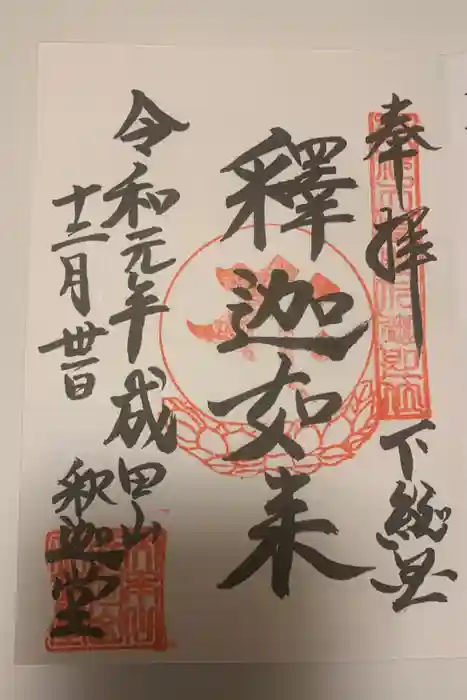 奉拝 下総国
釋迦如来
令和元年 成田山
十二月丗一日 釈迦堂